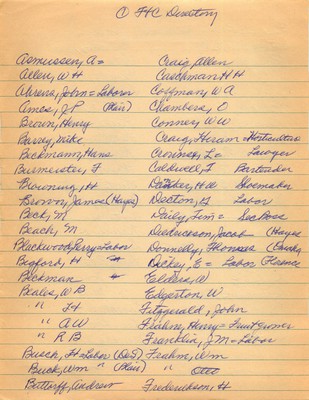 © FHC Directory
Asmussen, A=
Allen, W H
Ahrens, John = Labor
Ames, J P (Blair)
Brown, Henry
Barrey, Mike
Beckmann, Hans
Burmeister, F
Browning, H
Brown, James (Hayes)
Beck, M
Beach, M
Blackwood, Perry = Labor
Bedford, H
Beckman
Beales, W B
" L F
" A W
" R B
Busch, H = Labor (DeS)
Buck, Wm " (Blair)
Bottorff, Andrew
Craig Allen
Cuschman H H
Coffman, W A
Chambers, O
Conner, W W
Craig, Hiram = Horticulture
Crovines, L = Lawyer
Caldwell, F Bartender
Decker, H d Shoemaker
Deeton, G Labor
Daily, Jim = Sec Boss
Diedrickson, Jacob (Hayes
Donnelly, Thomas (Omaha
Dickey, E = Labor Florence
Elders, W
Edgerton, W
Fitzgerald, John
Frahm, Henry = Fruit grower
Franklin, J M = Labor
Frahm, Wm
" Otto
Frederickson, H